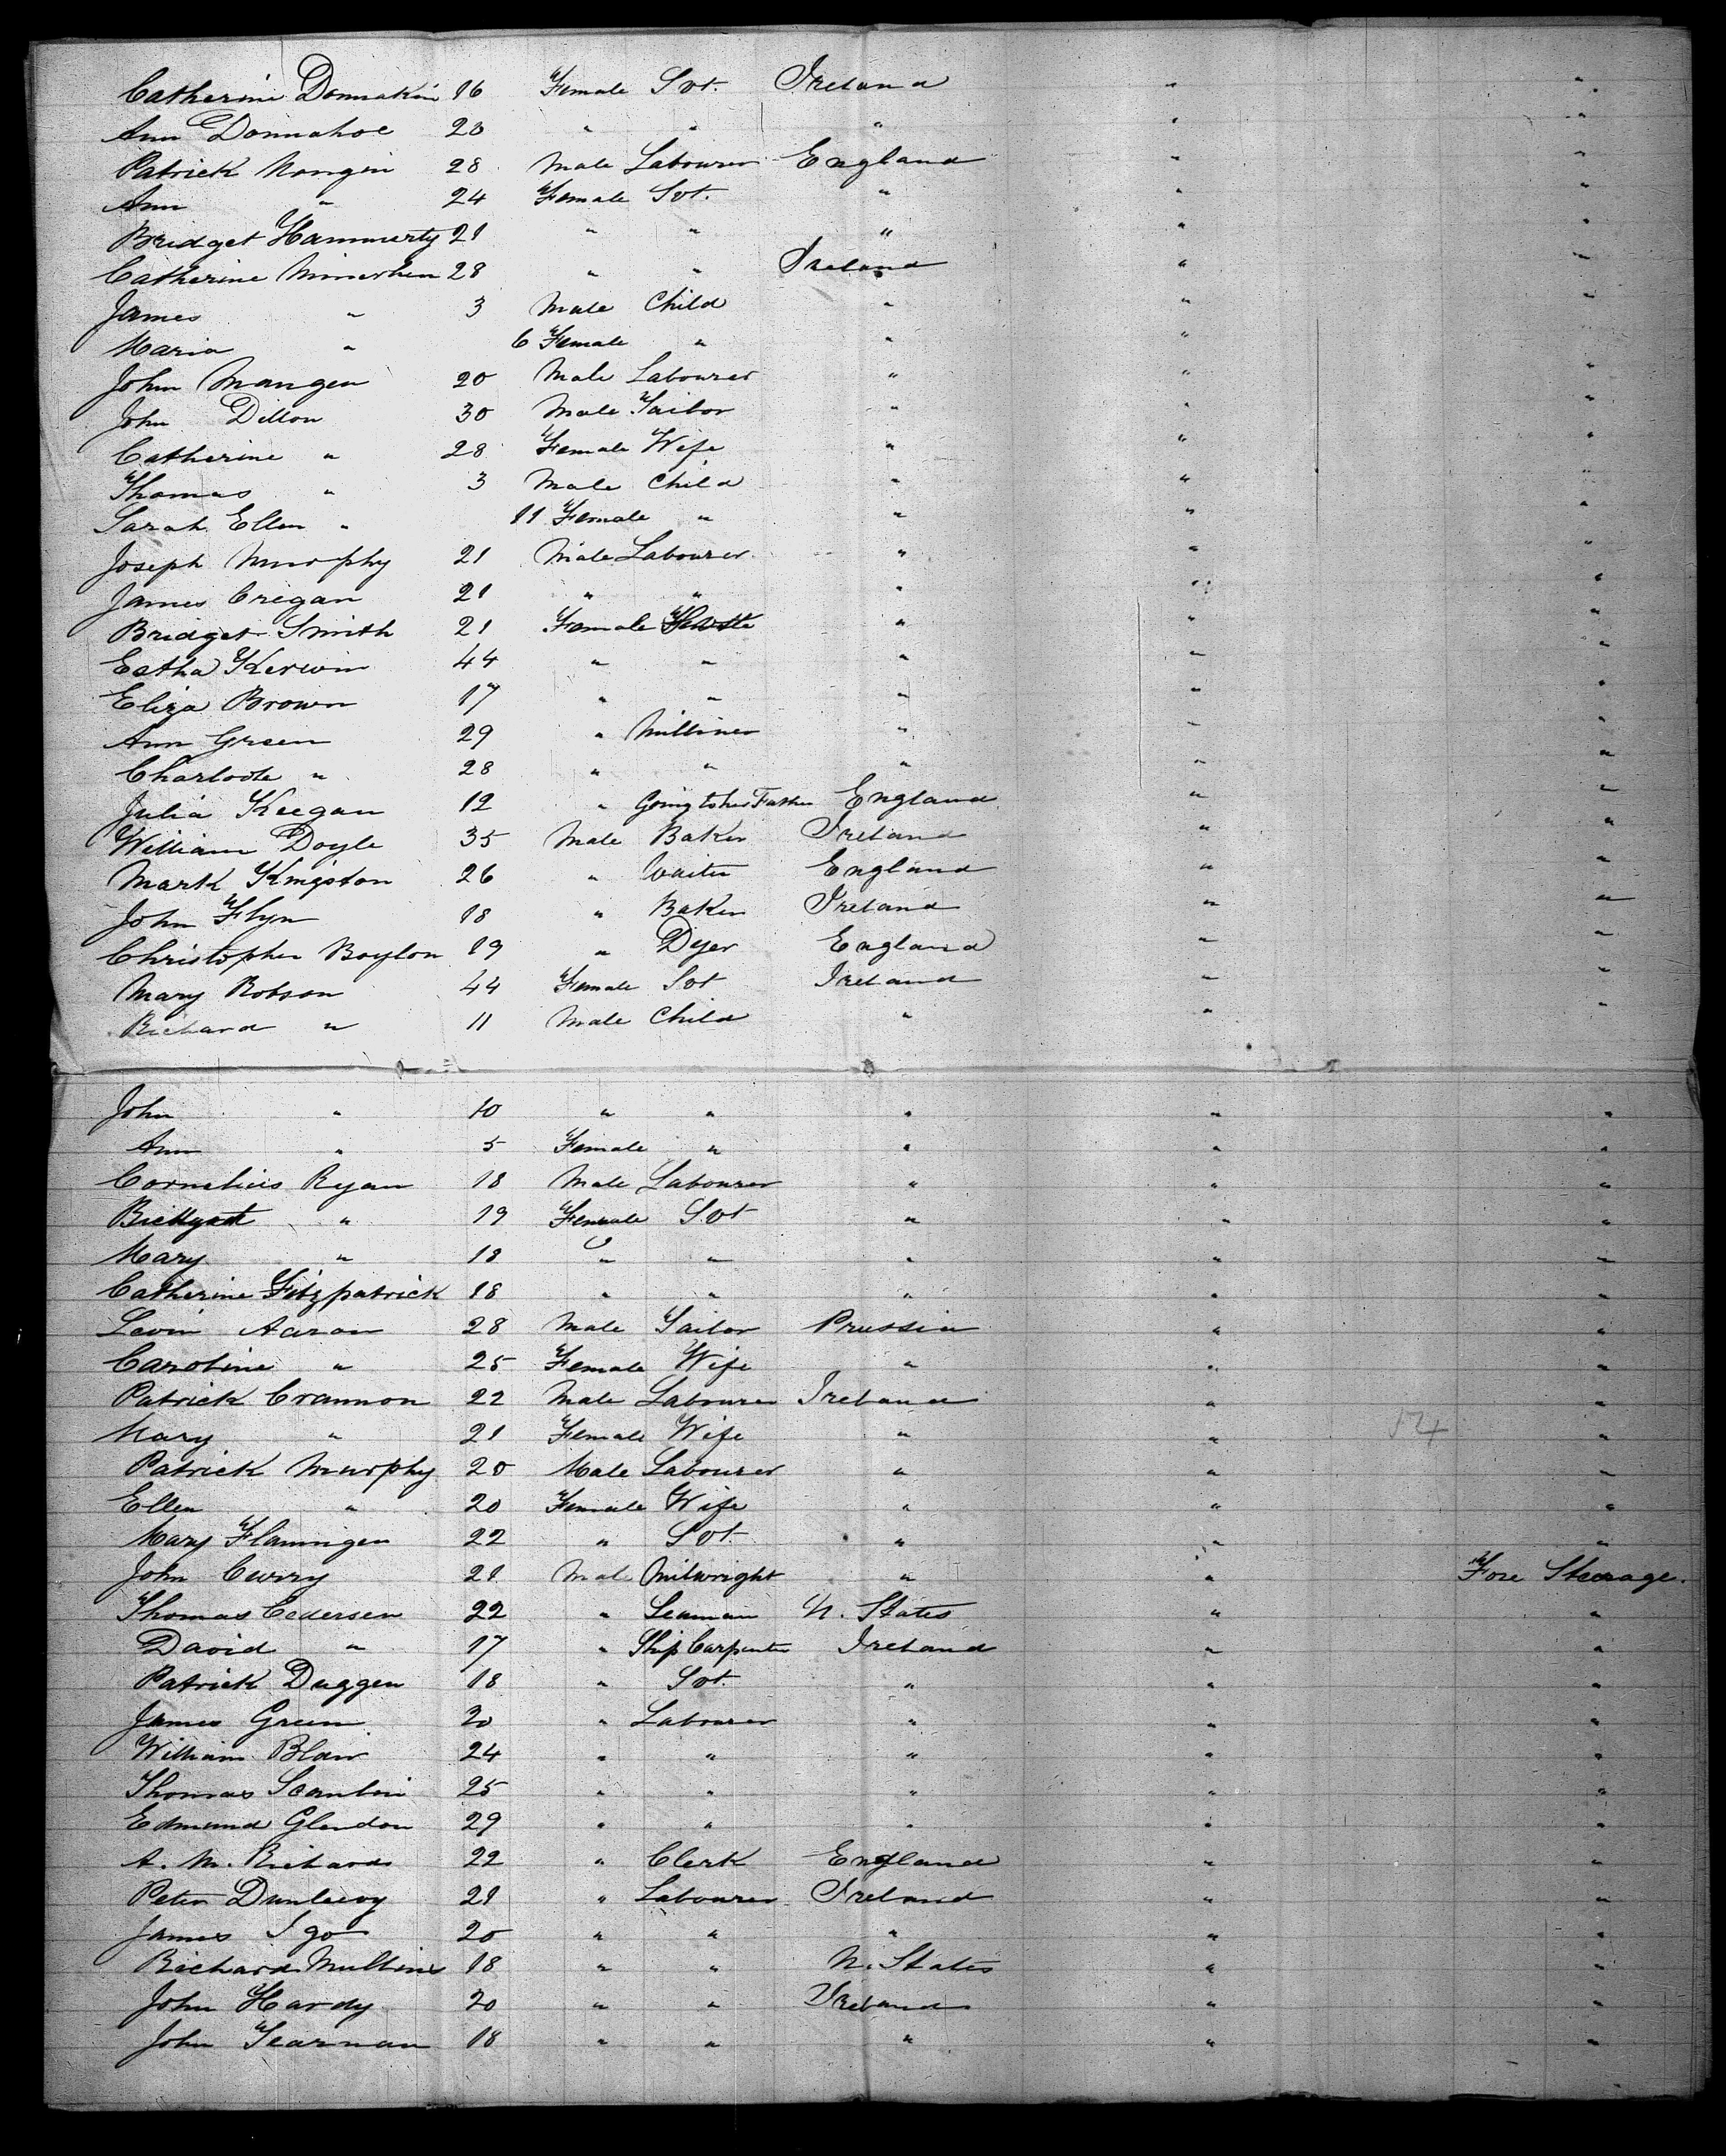 Catherine Donnakin 16 Female Svt. Ireland " "
Ann Donnahoe 20 " " " " "
Patrick Nongin 28 Male Labourer England " "
Ann " 24 Female Svt. " " "
Bridget Hammerty 21 " " " " "
Catherine 28 " " Ireland " "
James " 3 Male Child " " "
Maria " 6 Female " " " "
John Mangen 20 Male Labourer " " "
John Dillon 30 Male Tailor " " "
Catherine " 28 Female Wife " " "
Thomas " 3 Male Child " " "
Sarah Ellen " 11 Female " " " "
Joseph Murphy 21 Male Labourer " " "
James Cregan 21 " " " " "
Bridget Smith 21 Female " " "
Estha Kerwin 44 " " " " "
Eliza Brown 17 " " " " "
Ann Green 29 " Milliner " " "
Charlode " 28 " " " " "
Julia Keegan 12 " Going to her Father England " "
William Doyle 35 Male Baker Ireland " "
Mark Kingston 26 " Waiter England " "
John Flyn 18 " Baker Ireland " "
Christopher Boylon 19 " Dyer England " "
Mary Robson 44 Female Svt Ireland " "
Richard " 11 Male Child " " "
John " 10 " " " " "
Ann " 5 Female " " " "
Cornelius Ryan 18 Male Labourer " " "
" 19 Female Svt " " "
Mary " 18 " " " " "
Catherine Fitzpatrick 18 " " " " "
Levin Aaron 28 Male Tailor Prussia " "
Caroline " 25 Female Wife " " "
Patrick Crannon 22 Male Labourer Ireland " "
Mary " 21 Female Wife " " "
Patrick Murphy 20 Male Labourer " " "
Ellen " 20 Female Wife " " "
Mary Flannigen 22 " Svt. " " "
John Curry 21 Mal Milwright " " Fore Steerage.
Thomas Cedersen 22 " Seaman U. States " "
David " 17 " Ship Carpenter Ireland " "
Patrick Duggen 18 " Svt. " " "
James Green 20 " Labourer " " "
William Blair 24 " " " " "
Thomas Scanlin 25 " " " " "
Edmund Glendon 29 " " " " "
A. M. Richards 22 " Clerk England " "
Peter Dunlevey 21 " Labourer Ireland " "
James Igo 20 " " " " "
Richard Mullins 18 " " U. States " "
John Hardy 20 " " Ireland " "
John Tearnan 18 " " " " "